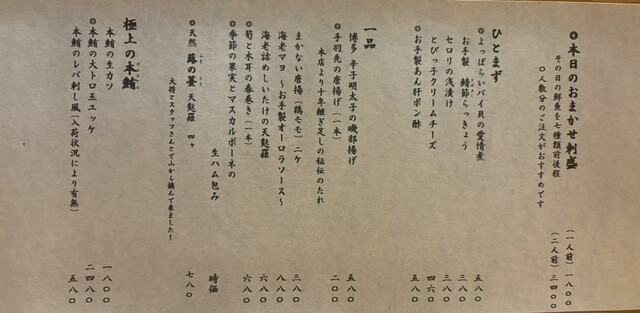 ◎本日のおまかせ刺盛
その日の鮮魚を七種類前後程
〇人数分のご注文がおすすめです
(一人前) 一八〇〇
(二人前) 三四〇〇
ひとまず
◎よっぱらいバイ貝の愛情煮 五八〇
お手製 鯖節らっきょう 三八〇
セロリの浅漬け 三八〇
とびっ子クリームチーズ 四六〇
◎お手製あん肝ポン酢 五八〇
一品
博多 辛子明太子の磯部揚げ 五八〇
◎手羽先の唐揚げ(一本) 二〇〇
本店より十年継ぎ足しの秘伝のたれ
まかない唐揚(鶏モモ)二ケ 三八〇
海老マヨ 〜お手製オーロラソース〜 八八〇
海老詰めしいたけの天麩羅 六八〇
◎筍と木耳の春巻き(一本) 六八〇
◎季節の果実とマスカルポーネの
生ハム包み 時価
◎天然 蕗の薹 天麩羅 四ヶ 七八〇
ふき とう
大将とスタッフさんとで山から摘んで来ました!
極上の本鮪
本鮪の生カツ 一八〇〇
◎本鮪の大トロ玉ユッケ 二四八〇
本鮪のレバ刺し風(入荷状況により有無) 五八〇